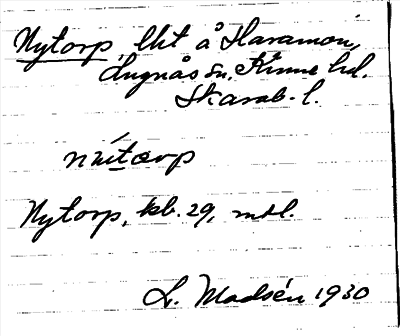 Nytorp, lht å Haramon,
Lugnås sn, Kinne hd.
Skarab. l.
nỳtårp
Nytorp, kb. 29, mtl.
L. Madsén 1930